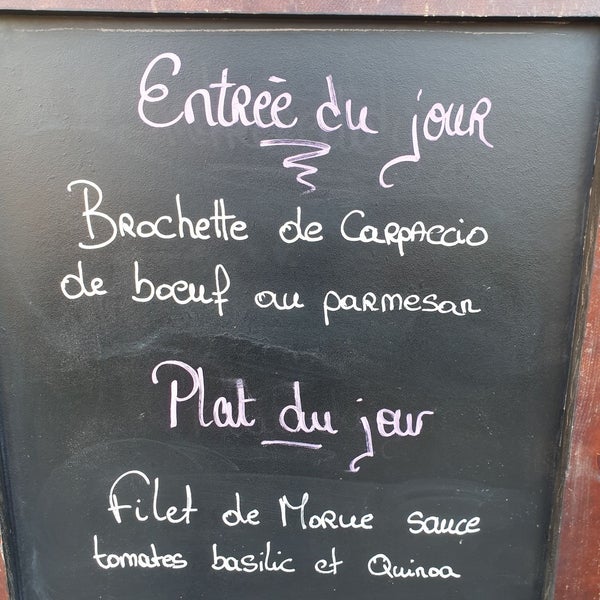 Entrée du jour
Brochette de Carpaccio
de boeuf au parmesan
Plat du jour
Filet de Morue sauce
tomates basilic et Quinoa